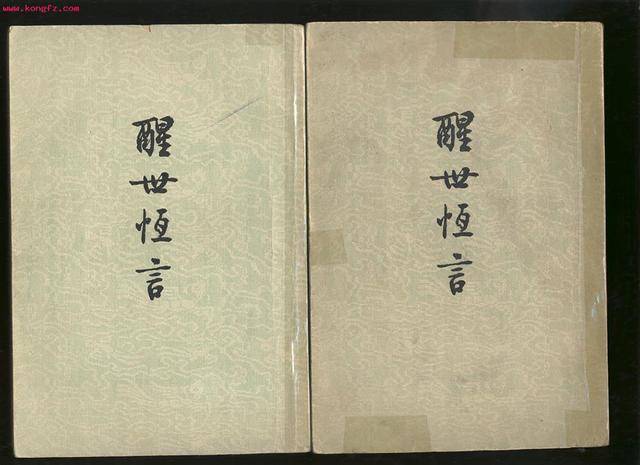 www.kongfz.com
醒世恆言
醒世恆言